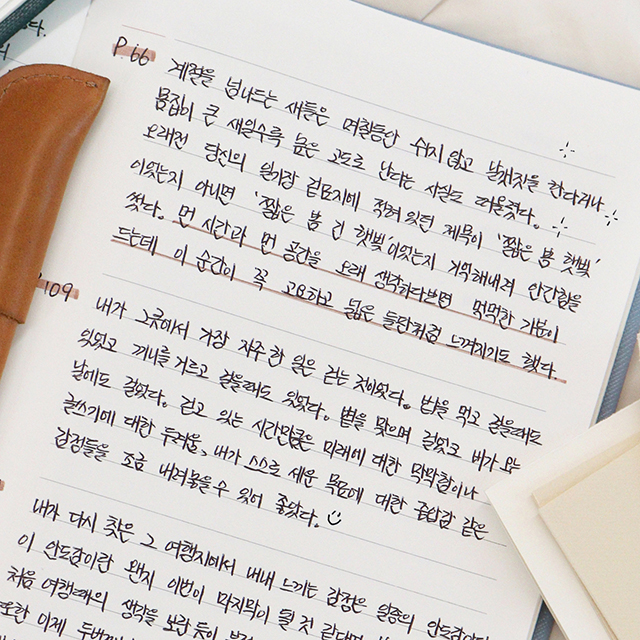 P.66
계절을 넘나드는 새들은 며칠동안 쉬지 않고 날갯짓을 한다거나
몸집이 큰 새일수록 높은 고도로 난다는 사실도 떠올렸다.
오래전 당신의 일기장 겉표지에 적혀 있던 제목이 '짧은 봄 햇빛'
이었는지 아니면 '짧은 봄 긴 햇빛'이었는지 기억해내려 안간힘을
썼다. 먼 시간과 먼 공간을 오래 생각하다보면 먹먹한 기분이
드는데 이 순간이 꼭 고요하고 넓은 들판처럼 느껴지기도 했다.
109
내가 그곳에서 가장 자주 한 일은 걷는 것이었다. 밥을 먹고 걸을때도
있었고 끼니를 거르고 걸을때도 있었다. 볕을 맞으며 걸었고 비가 오는
날에도 걸었다. 걷고 있는 시간만큼은 미래에 대한 막막함이나
글쓰기에 대한 두려움, 내가 스스로 세운 목표에 대한 중압감 같은
감정들을 조금 내려놓을 수 있어 좋았다.
내가 다시 찾은 그 여행지에서 내내 느끼는 감정은 일종의 안도감이다
이 안도감이란 왠지 이번이 마지막이 될 것 같다면
처음 여행때의 생각을 보란 듯이
또한 이제 두번째